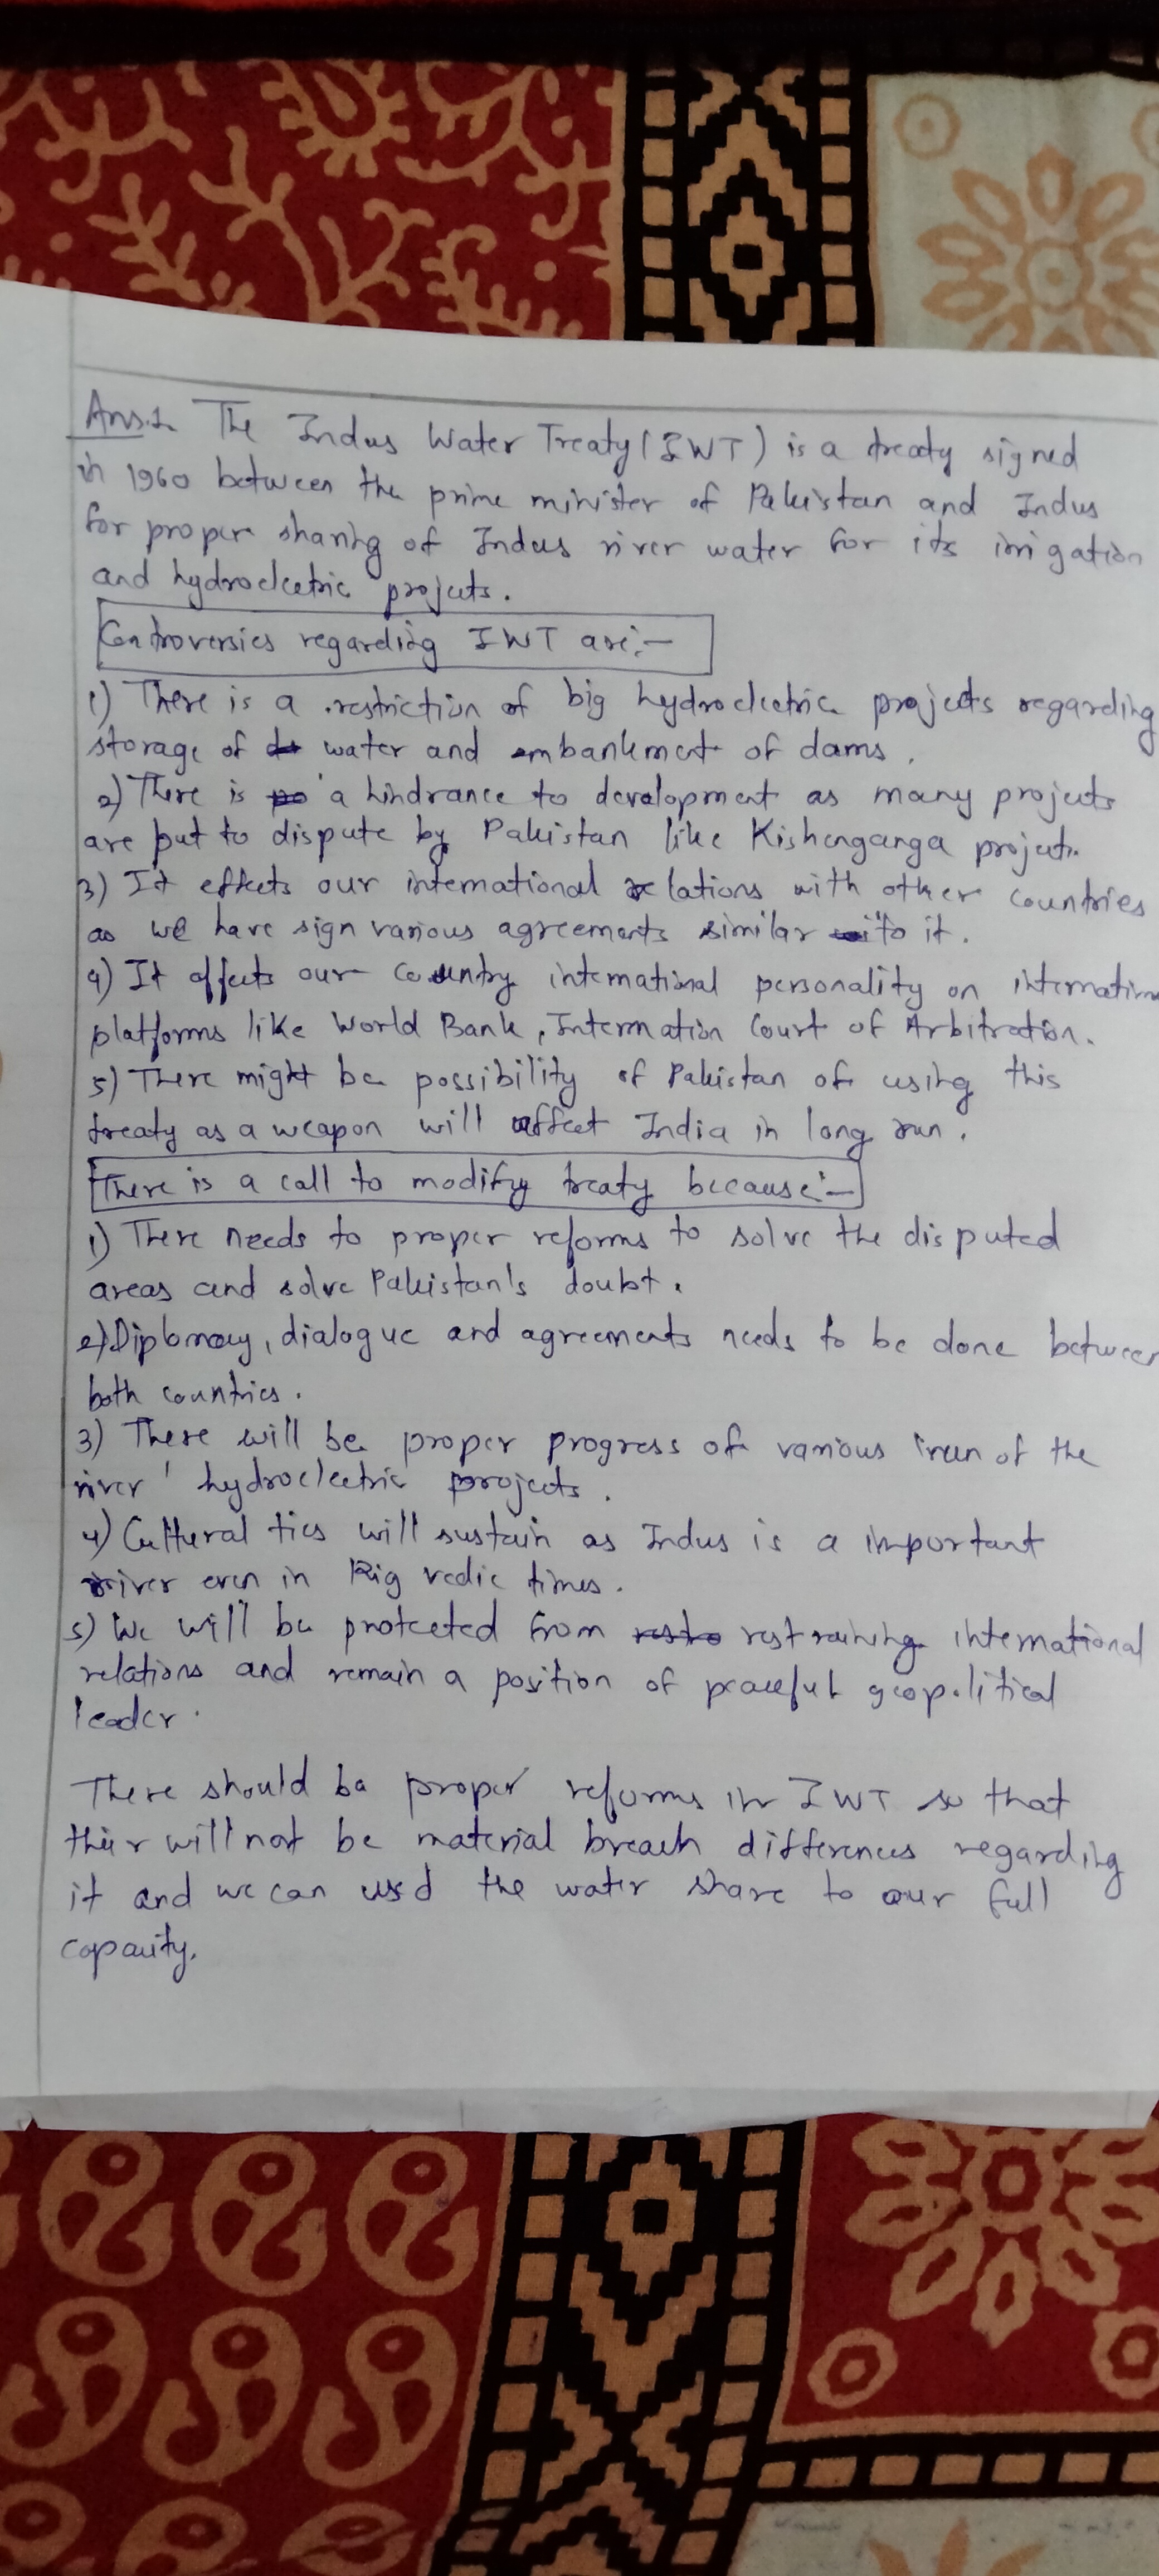 Ans.1 The Indus Water Treaty (IWT) is a treaty signed
in 1960 between the prime minister of Pakistan and Indus
for proper sharing of Indus river water for its irrigation
and hydroelectric projects.
Controversies regarding IWT are:-
1) There is a restriction of big hydroelectric projects regarding
storage of water and embankment of dams.
2) There is a hindrance to development as many projects
are put to dispute by Pakistan like Kishenganga project.
3) It effects our international relations with other countries
as we have sign various agreements similar to it.
4) It affects our country international personality on internation
platforms like World Bank, Internation Court of Arbitration.
5) There might be possibility of Pakistan of using this
treaty as a weapon will affect India in long run.
There is a call to modify treaty because:-
1) There needs to proper reforms to solve the disputed
areas and solve Pakistan's doubt.
2) Diplomacy, dialogue and agreements needs to be done between
both countries.
3) There will be proper progress of various 'run of the
river' hydroelectric projects.
4) Cultural ties will sustain as Indus is a important
river even in Rig vedic times.
5) We will be protected from restraining international
relations and remain a position of peaceful geopolitical
leader.
There should be proper reforms in IWT so that
their will not be material breach differences regarding
it and we can used the water share to our full
capacity.